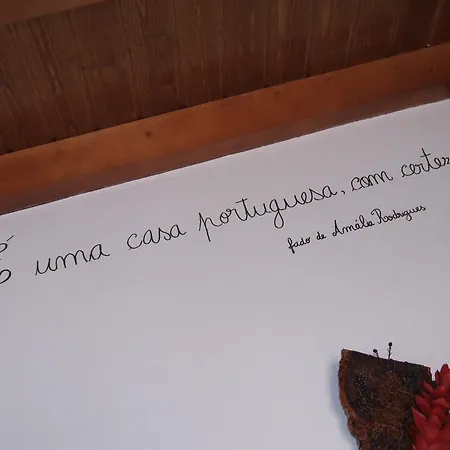 É uma casa portuguesa, com certez
fado de Amália Rodrigues